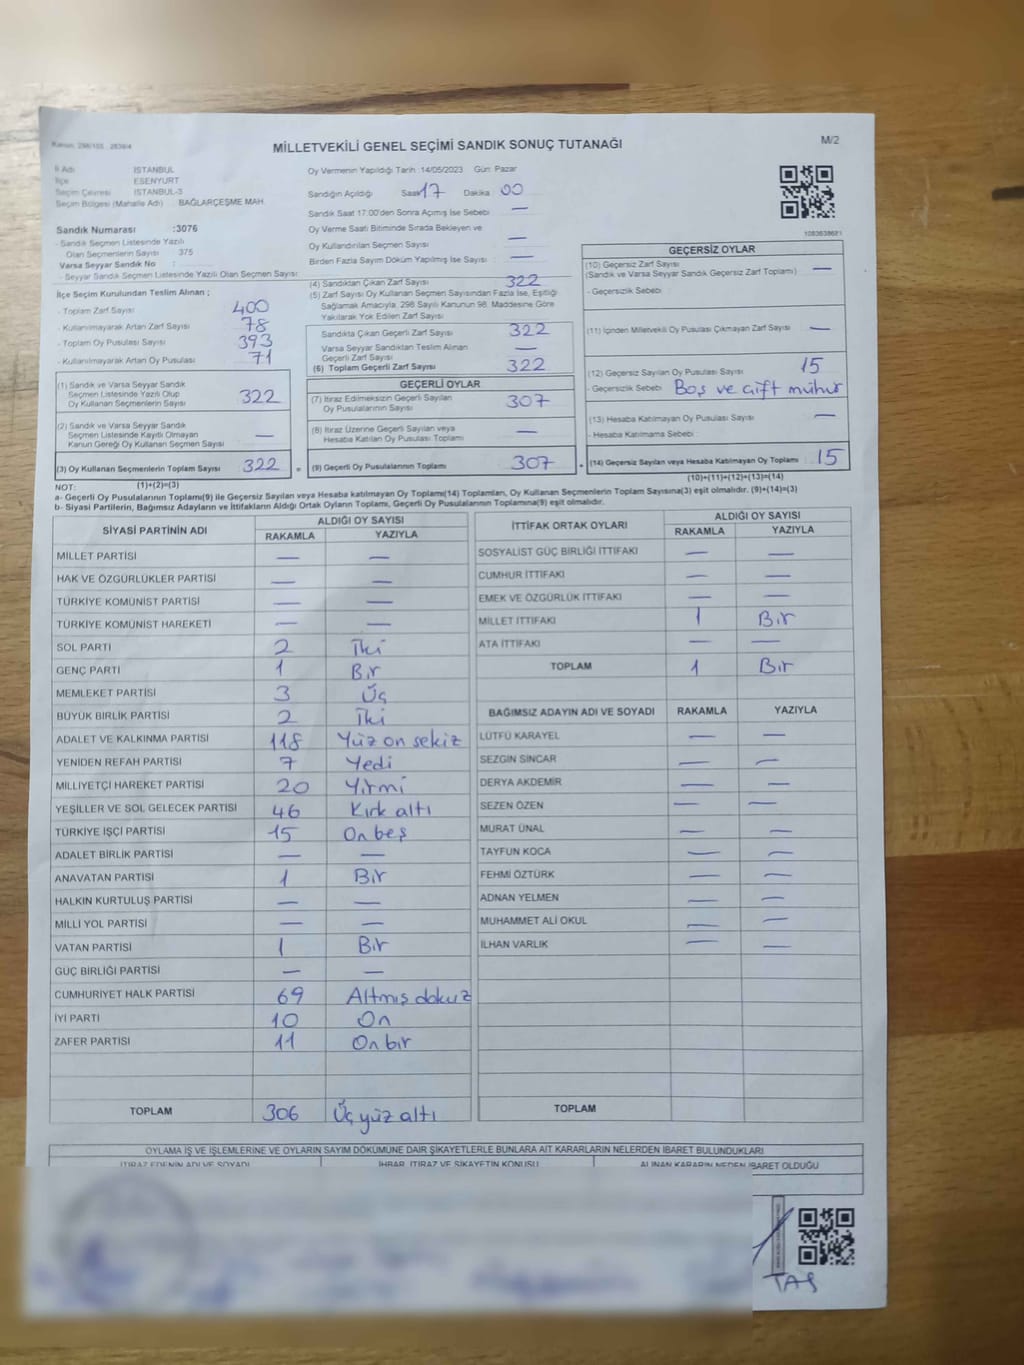 MİLLETVEKİLİ GENEL SEÇİMİ SANDIK SONUÇ TUTANAĞI
M/2
İl Adı İSTANBUL
İlçe ESENYURT
Seçim Çevresi İSTANBUL-3
Seçim Bölgesi (Mahalle Adı) BAĞLARÇEŞME MAH.
Sandık Numarası :3076
- Sandık Seçmen Listesinde Yazılı
Olan Seçmenlerin Sayısı : 375
Varsa Seyyar Sandık No :
- Seyyar Sandık Seçmen Listesinde Yazılı Olan Seçmen Sayısı:
Oy Vermenin Yapıldığı Tarih :14/05/2023 Gün: Pazar
Sandığın Açıldığı Saat 17 Dakika 00
Sandık Saat 17.00'den Sonra Açımış İse Sebebi —
Oy Verme Saati Bitiminde Sırada Bekleyen ve
Oy Kullandırılan Seçmen Sayısı —
Birden Fazla Sayım Döküm Yapılmış İse Sayısı : —
1083638621
İlçe Seçim Kurulundan Teslim Alınan ;
- Toplam Zarf Sayısı 400
- Kullanılmayarak Artan Zarf Sayısı 78
- Toplam Oy Pusulası Sayısı 393
- Kullanılmayarak Artan Oy Pusulası 71
(1) Sandık ve Varsa Seyyar Sandık
Seçmen Listesinde Yazılı Olup
Oy Kullanan Seçmenlerin Sayısı 322
(2) Sandık ve Varsa Seyyar Sandık
Seçmen Listesinde Kayıtlı Olmayan
Kanun Gereği Oy Kullanan Seçmen Sayısı —
(3) Oy Kullanan Seçmenlerin Toplam Sayısı 322 =
(1)+(2)=(3)
(4) Sandıktan Çıkan Zarf Sayısı 322
(5) Zarf Sayısı Oy Kullanan Seçmen Sayısından Fazla İse, Eşitliği
Sağlamak Amacıyla, 298 Sayılı Kanunun 98. Maddesine Göre
Yakılarak Yok Edilen Zarf Sayısı
Sandıkta Çıkan Geçerli Zarf Sayısı 322
Varsa Seyyar Sandıktan Teslim Alınan
Geçerli Zarf Sayısı —
(6) Toplam Geçerli Zarf Sayısı 322
GEÇERLİ OYLAR
(7) İtiraz Edilmeksizin Geçerli Sayılan
Oy Pusulalarının Sayısı 307
(8) İtiraz Üzerine Geçerli Sayılan veya
Hesaba Katılan Oy Pusulası Toplamı —
(9) Geçerli Oy Pusulalarının Toplamı 307
GEÇERSİZ OYLAR
(10) Geçersiz Zarf Sayısı
(Sandık ve Varsa Seyyar Sandık Geçersiz Zarf Toplamı) —
- Geçersizlik Sebebi :
(11) İçinden Milletvekili Oy Pusulası Çıkmayan Zarf Sayısı —
(12) Geçersiz Sayılan Oy Pusulası Sayısı 15
- Geçersizlik Sebebi Boş ve çift mühür
(13) Hesaba Katılmayan Oy Pusulası Sayısı —
- Hesaba Katılmama Sebebi
(14) Geçersiz Sayılan veya Hesaba Katılmayan Oy Toplamı : 15
(10)+(11)+(12)+(13)=(14)
NOT:
a- Geçerli Oy Pusulalarının Toplamı(9) ile Geçersiz Sayılan veya Hesaba katılmayan Oy Toplamı(14) Toplamları, Oy Kullanan Seçmenlerin Toplam Sayısına(3) eşit olmalıdır. (9)+(14)=(3)
b- Siyasi Partilerin, Bağımsız Adayların ve İttifakların Aldığı Ortak Oyların Toplamı, Geçerli Oy Pusulalarının Toplamına(9) eşit olmalıdır.
SİYASİ PARTİNİN ADI ALDIĞI OY SAYISI
RAKAMLA YAZIYLA
MİLLET PARTİSİ — —
HAK VE ÖZGÜRLÜKLER PARTİSİ — —
TÜRKİYE KOMÜNİST PARTİSİ — —
TÜRKİYE KOMÜNİST HAREKETİ — —
SOL PARTİ 2 İki
GENÇ PARTİ 1 Bir
MEMLEKET PARTİSİ 3 Üç
BÜYÜK BİRLİK PARTİSİ 2 İki
ADALET VE KALKINMA PARTİSİ 118 Yüz on sekiz
YENİDEN REFAH PARTİSİ 7 Yedi
MİLLİYETÇİ HAREKET PARTİSİ 20 Yirmi
YEŞİLLER VE SOL GELECEK PARTİSİ 46 Kırk altı
TÜRKİYE İŞÇİ PARTİSİ 15 On beş
ADALET BİRLİK PARTİSİ — —
ANAVATAN PARTİSİ 1 Bir
HALKIN KURTULUŞ PARTİSİ — —
MİLLİ YOL PARTİSİ — —
VATAN PARTİSİ 1 Bir
GÜÇ BİRLİĞİ PARTİSİ — —
CUMHURİYET HALK PARTİSİ 69 Altmış dokuz
İYİ PARTİ 10 On
ZAFER PARTİSİ 11 On bir
TOPLAM 306 Üç yüz altı
İTTİFAK ORTAK OYLARI ALDIĞI OY SAYISI
RAKAMLA YAZIYLA
SOSYALİST GÜÇ BİRLİĞİ İTTİFAKI — —
CUMHUR İTTİFAKI — —
EMEK VE ÖZGÜRLÜK İTTİFAKI — —
MİLLET İTTİFAKI 1 Bir
ATA İTTİFAKI — —
TOPLAM 1 Bir
BAĞIMSIZ ADAYIN ADI VE SOYADI RAKAMLA YAZIYLA
LÜTFÜ KARAYEL — —
SEZGİN SİNCAR — —
DERYA AKDEMİR — —
SEZEN ÖZEN — —
MURAT ÜNAL — —
TAYFUN KOCA — —
FEHMİ ÖZTÜRK — —
ADNAN YELMEN — —
MUHAMMET ALİ OKUL — —
İLHAN VARLIK — —
TOPLAM
OYLAMA İŞ VE İŞLEMLERİNE VE OYLARIN SAYIM DÖKÜMÜNE DAİR ŞİKAYETLERLE BUNLARA AİT KARARLARIN NELERDEN İBARET BULUNDUKLARI
İTİRAZ EDENİN ADI VE SOYADI İHBAR, İTİRAZ VE ŞİKAYETİN KONUSU ALINAN KARARIN NEDEN İBARET OLDUĞU
TAŞ